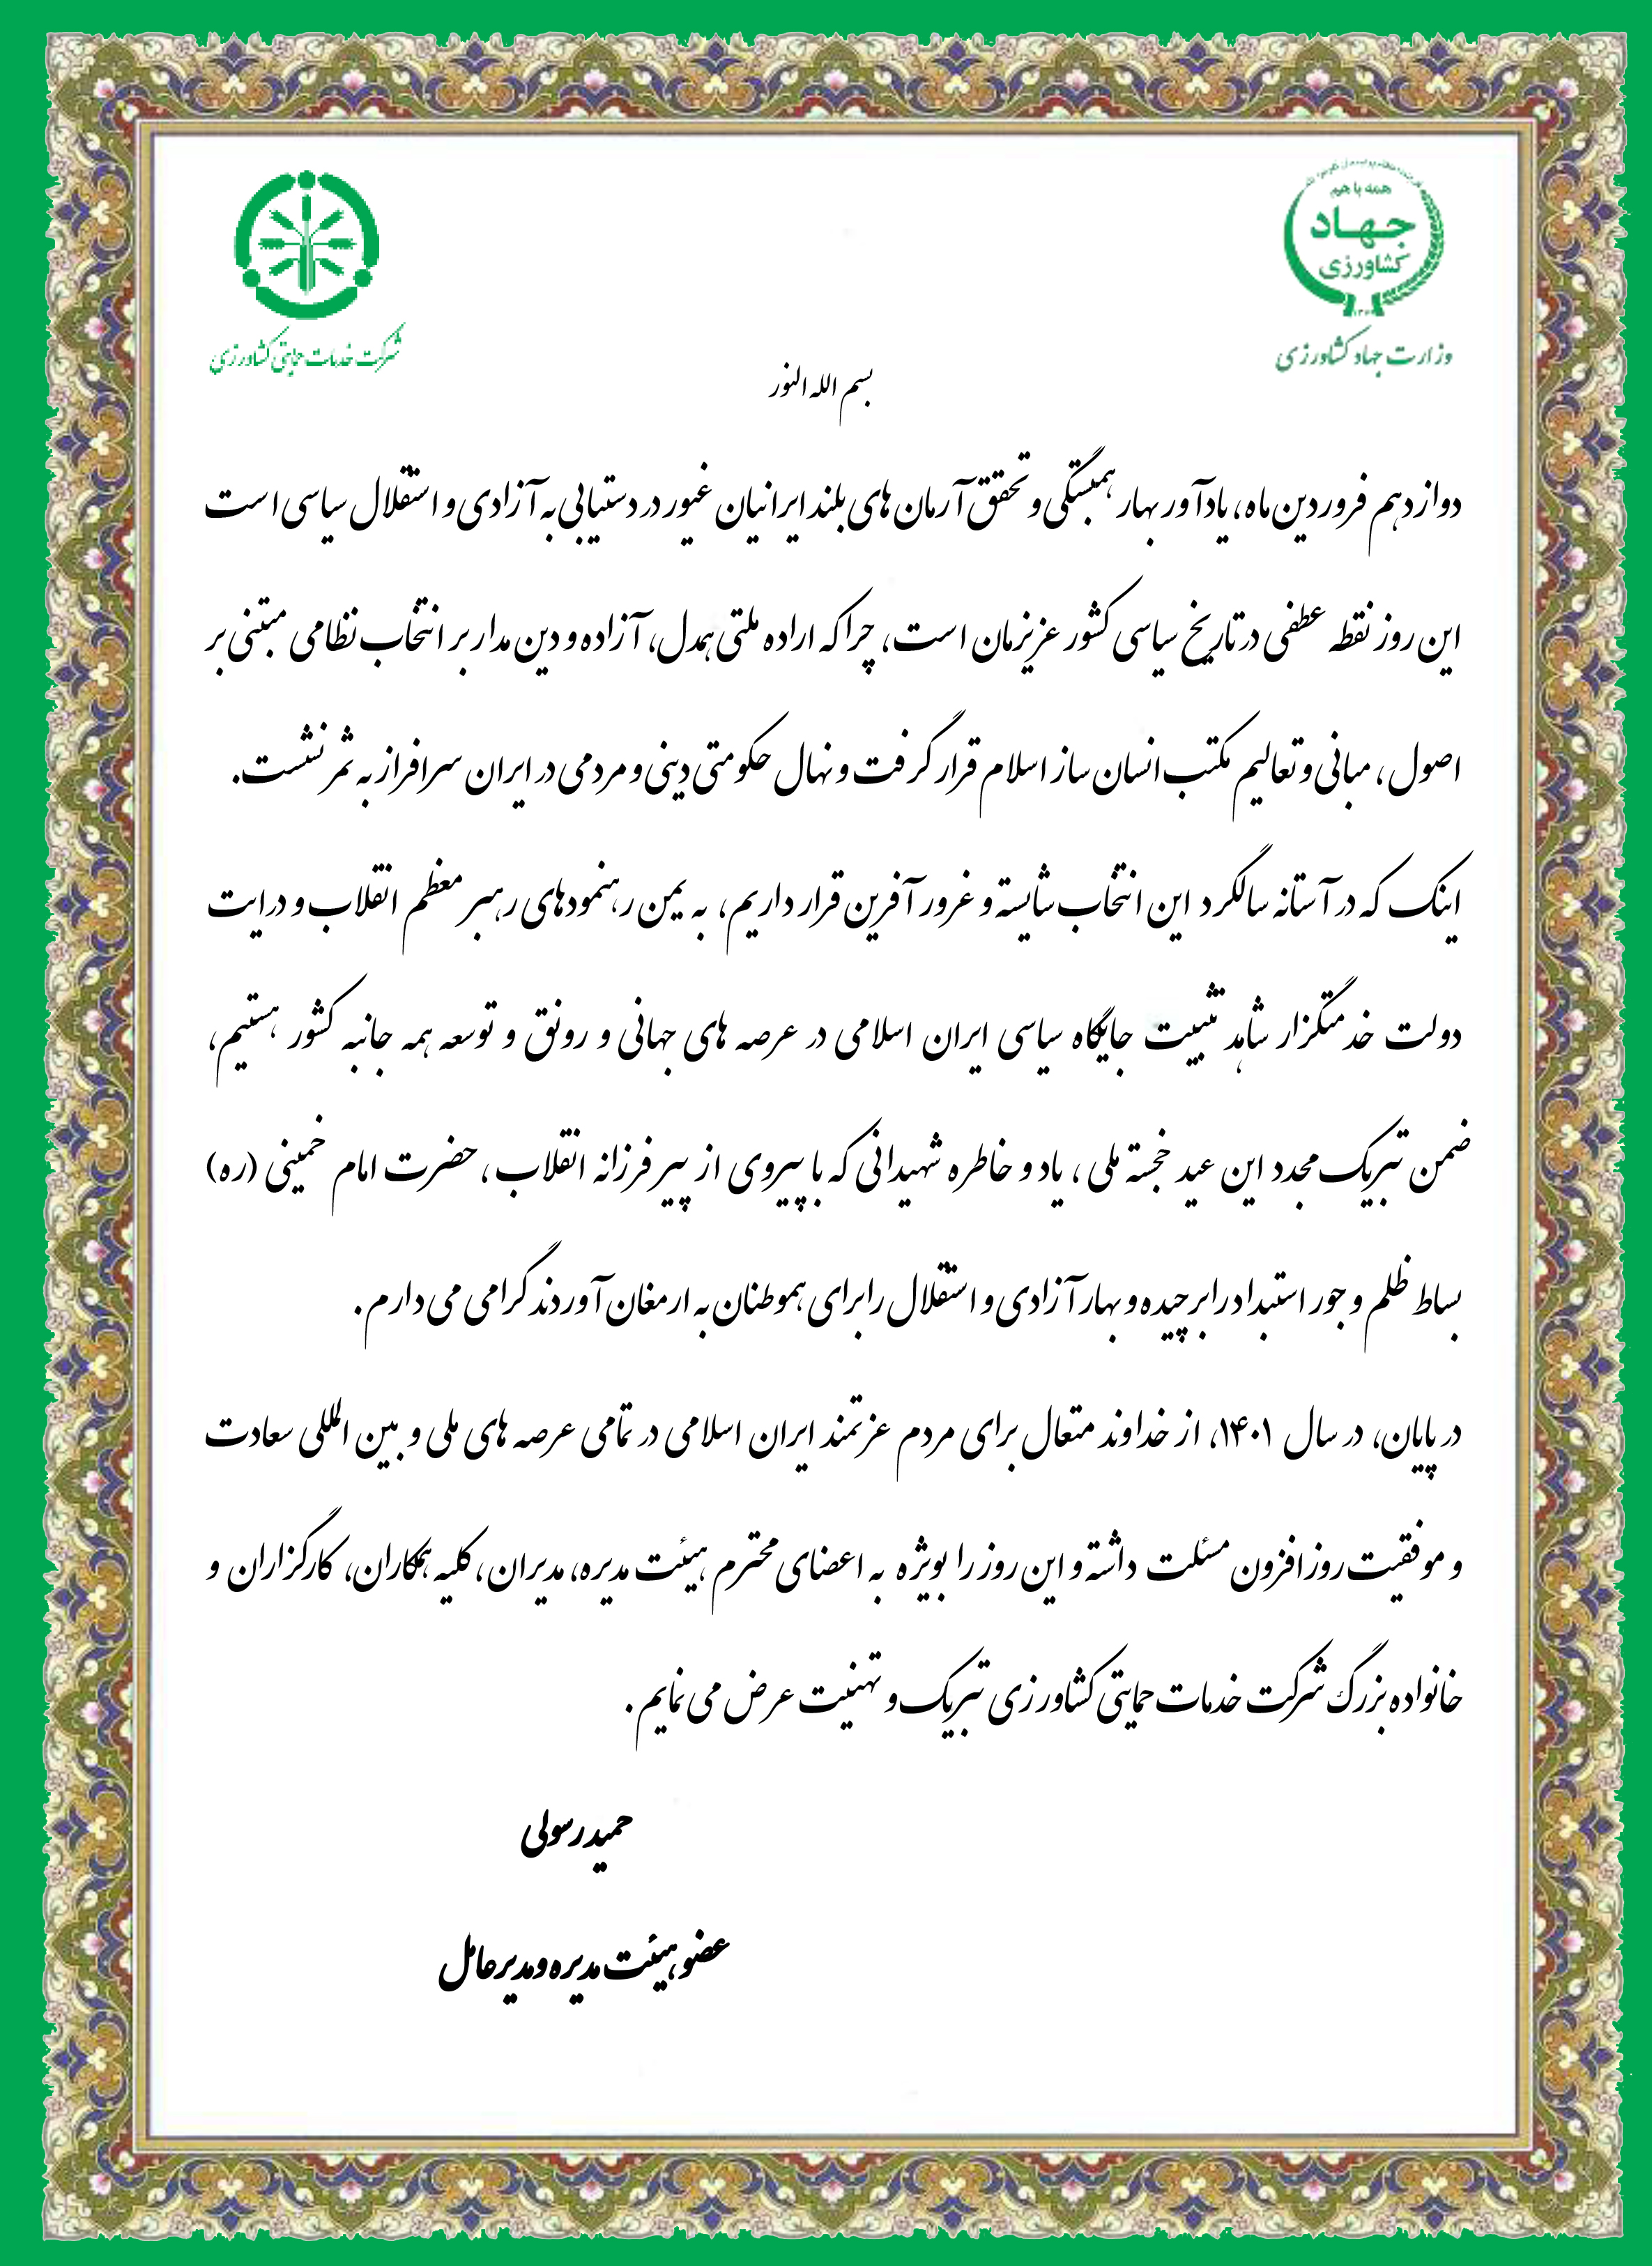 همه با هم
جهاد
کشاورزی
وزارت جهاد کشاورزی
شرکت خدمات حمایتی کشاورزی
بسم الله النور
دوازدهم فروردین ماه، یادآور بهار همبستگی و تحقق آرمان های بلند ایرانیان غیور در دستیابی به آزادی و استقلال سیاسی است
این روز نقطه عطفی در تاریخ سیاسی کشور عزیزمان است، چرا که اراده ملتی همدل، آزاده و دین مدار بر انتخاب نظامی مبتنی بر
اصول ، مبانی و تعالیم مکتب انسان ساز اسلام قرار گرفت و نهال حکومتی دینی و مردمی در ایران سرافراز به ثمر نشست.
اینک که در آستانه سالگرد این انتخاب شایسته و غرور آفرین قرار داریم، به یمن رهنمودهای رهبر معظم انقلاب و درایت
دولت خدمتگزار شاهد تثبیت جایگاه سیاسی ایران اسلامی در عرصه های جهانی و رونق و توسعه همه جانبه کشور هستیم،
ضمن تبریک مجدد این عید خجسته ملی ، یاد و خاطره شهیدانی که با پیروی از پیر فرزانه انقلاب ، حضرت امام خمینی (ره)
بساط ظلم و جور استبداد را برچیده و بهار آزادی و استقلال را برای هموطنان به ارمغان آوردند گرامی می دارم .
در پایان، در سال ۱۴۰۱، از خداوند متعال برای مردم عزتمند ایران اسلامی در تمامی عرصه های ملی و بین المللی سعادت
و موفقیت روز افزون مسئلت داشته و این روز را بویژه به اعضای محترم هیئت مدیره، مدیران ، کلیه همکاران، کارگزاران و
خانواده بزرگ شرکت خدمات حمایتی کشاورزی تبریک و تهنیت عرض می نمایم .
حمید رسولی
عضو هیئت مدیره و مدیر عامل